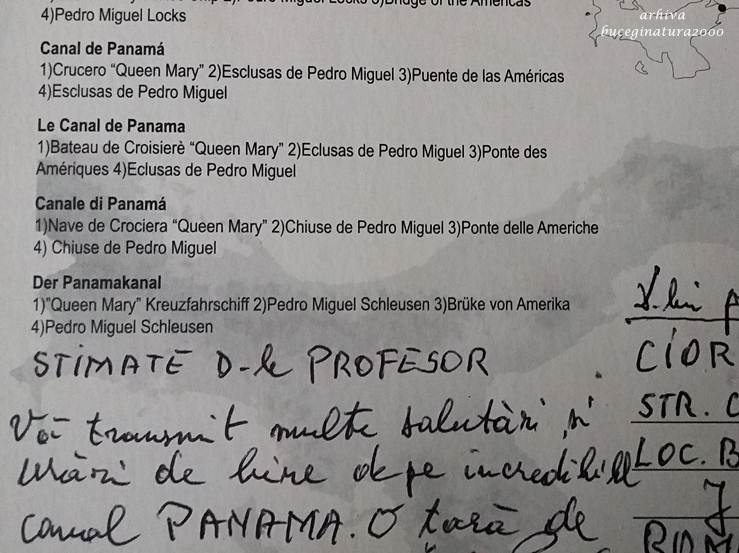 4)Pedro Miguel Locks
arhiva
buceginatura2000
Canal de Panamá
1)Crucero “Queen Mary” 2)Esclusas de Pedro Miguel 3)Puente de las Américas
4)Esclusas de Pedro Miguel
Le Canal de Panama
1)Bateau de Croisierè “Queen Mary” 2)Eclusas de Pedro Miguel 3)Ponte des
Amériques 4)Eclusas de Pedro Miguel
Canale di Panamá
1)Nave de Crociera “Queen Mary” 2)Chiuse de Pedro Miguel 3)Ponte delle Americhe
4) Chiuse de Pedro Miguel
Der Panamakanal
1)”Queen Mary” Kreuzfahrschiff 2)Pedro Miguel Schleusen 3)Brüke von Amerika
4)Pedro Miguel Schleusen
STIMATE D-le PROFESOR
Vă transmit multe salutări și
urări de bine de pe incredibilul
canal PANAMA. O țară de
CIOR
STR. C
LOC. B